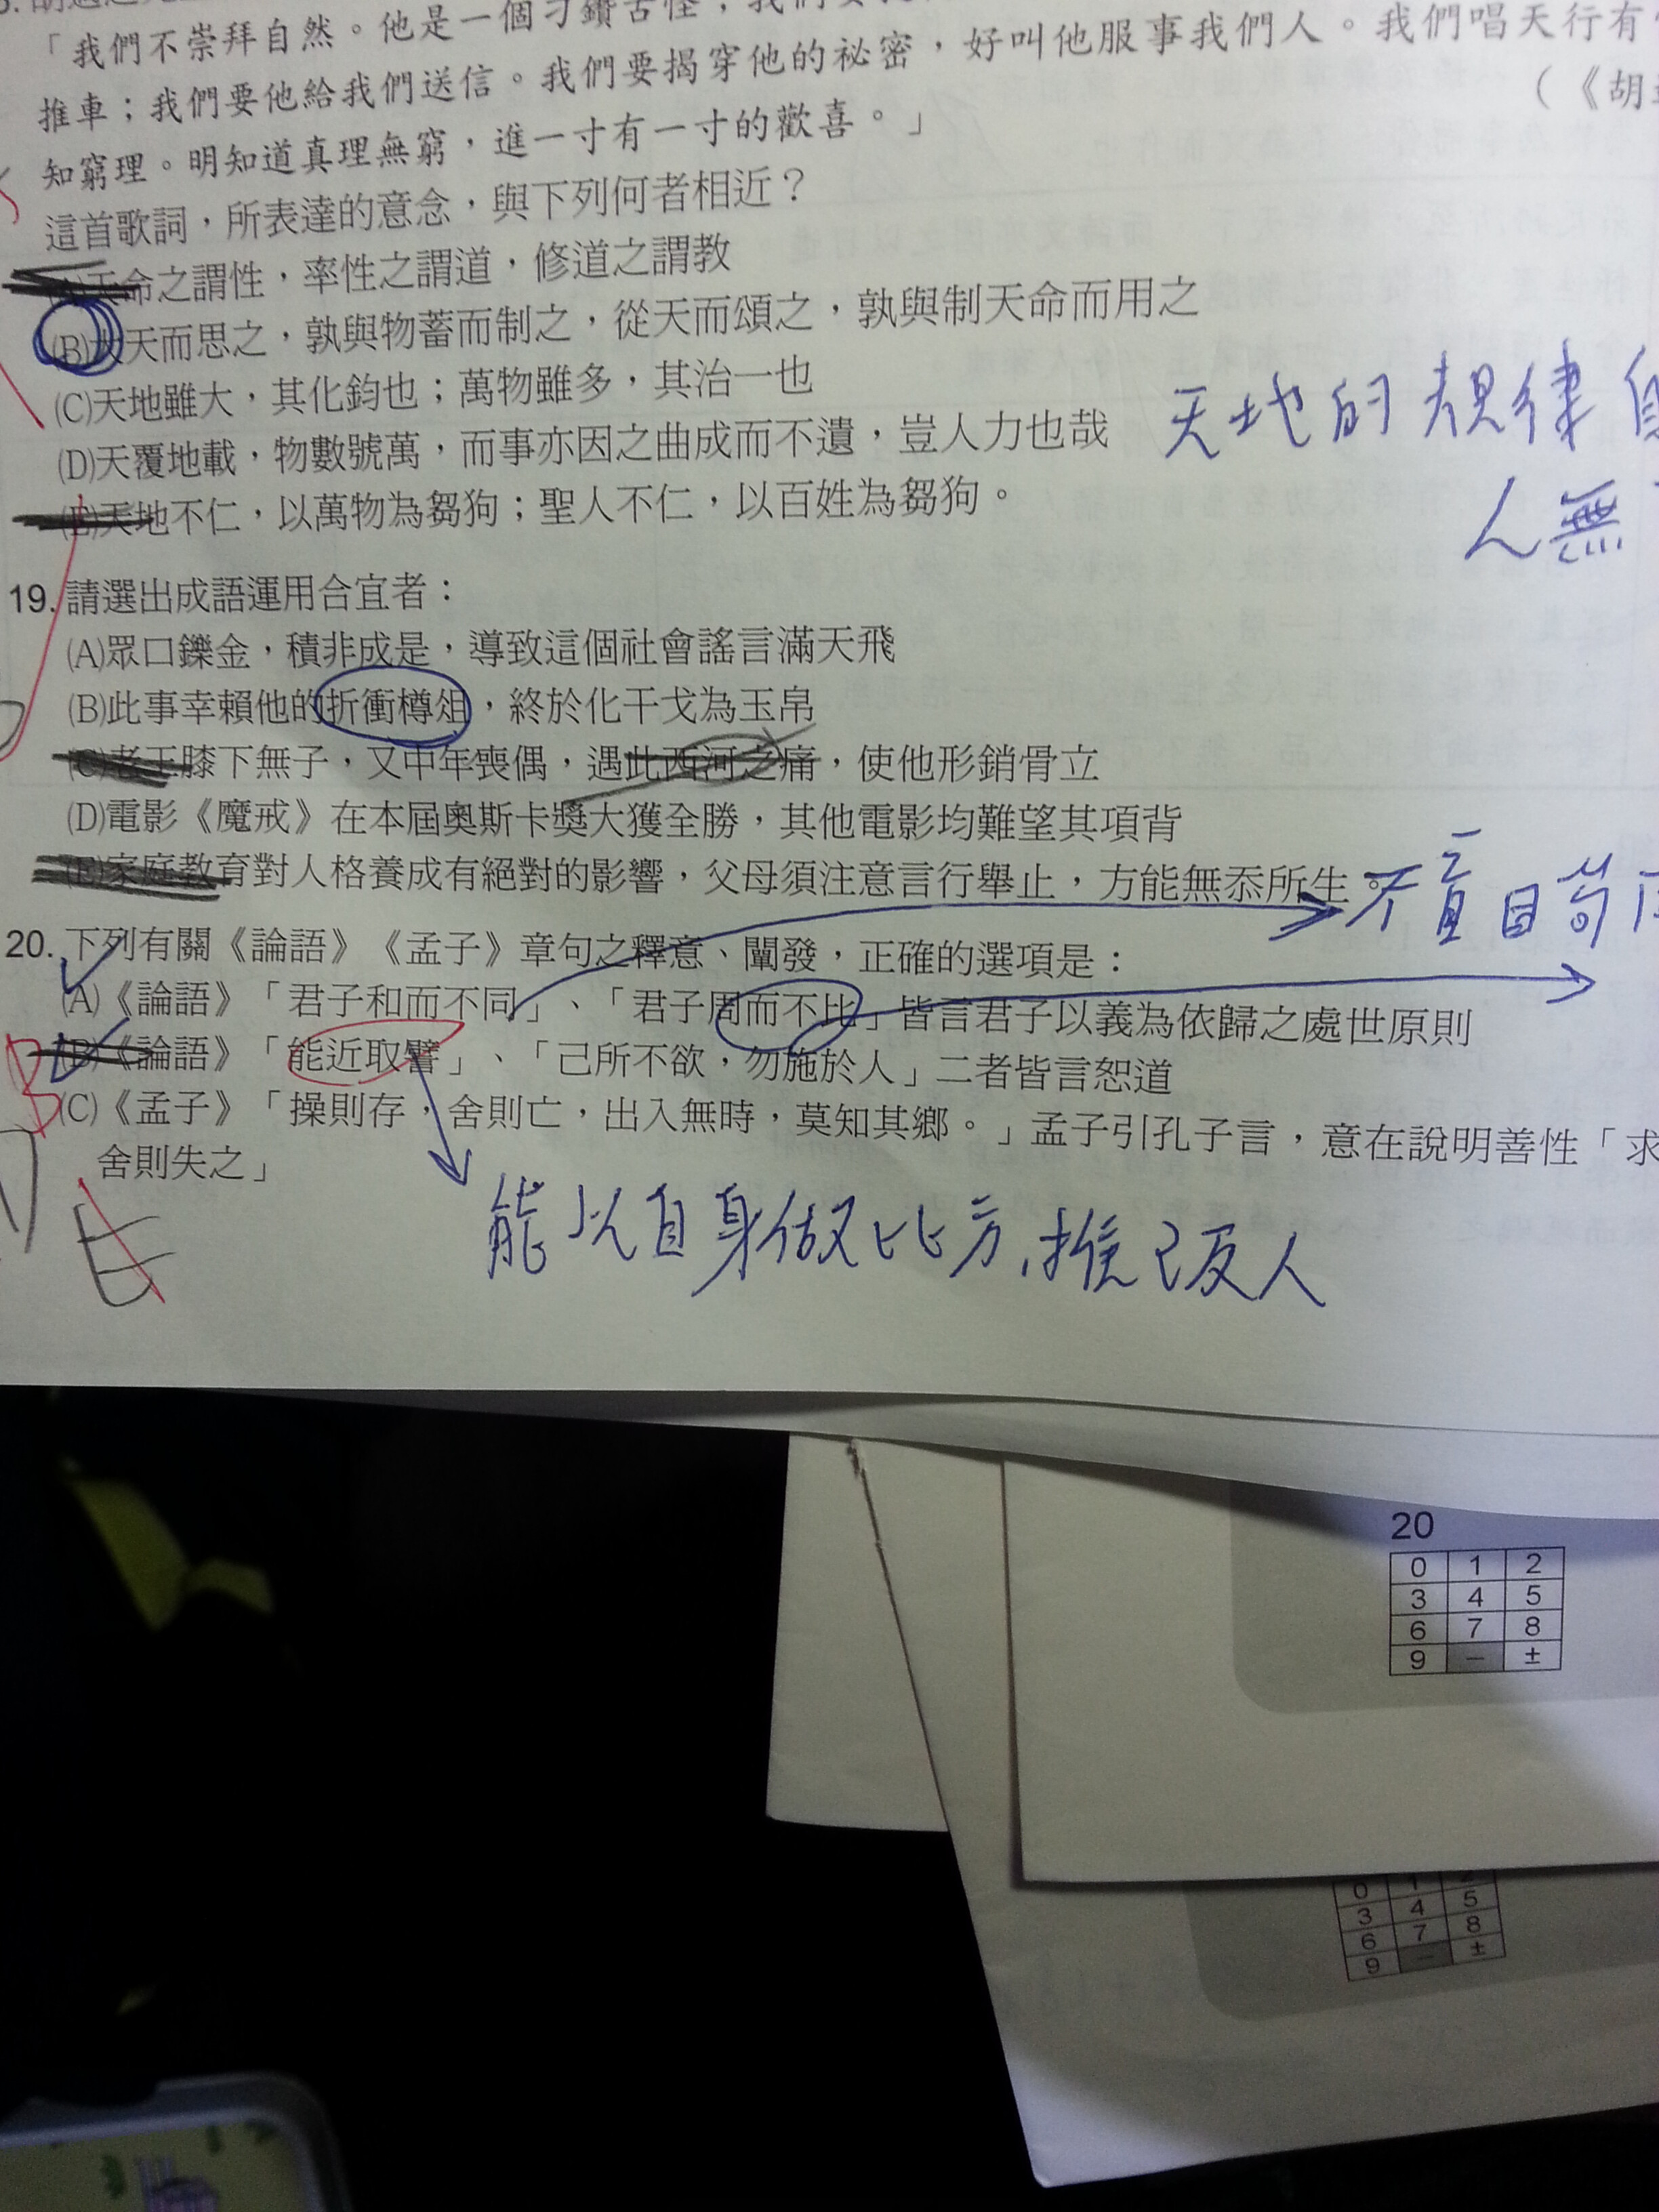 「我們不崇拜自然。他是一個刁鑽古怪;我們要
推車;我們要他給我們送信。我們要揭穿他的祕密,好叫他服事我們人。我們唱天行有
(《胡
知窮理。明知道真理無窮,進一寸有一寸的歡喜。」
這首歌詞,所表達的意念,與下列何者相近?
(A)天命之謂性,率性之謂道,修道之謂教
(B)大天而思之,孰與物蓄而制之,從天而頌之,孰與制天命而用之
(C)天地雖大,其化鈞也;萬物雖多,其治一也
(D)天覆地載,物數號萬,而事亦因之曲成而不遺,豈人力也哉
天地的規律
人無
(E)天地不仁,以萬物為芻狗;聖人不仁,以百姓為芻狗。
19. 請選出成語運用合宜者:
(A)眾口鑠金,積非成是,導致這個社會謠言滿天飛
(B)此事幸賴他的折衝樽俎,終於化干戈為玉帛
(C)老王膝下無子,又中年喪偶,遇此西河之痛,使他形銷骨立
(D)電影《魔戒》在本屆奧斯卡獎大獲全勝,其他電影均難望其項背
(E)家庭教育對人格養成有絕對的影響,父母須注意言行舉止,方能無忝所生。
不盲目苟同
20. 下列有關《論語》《孟子》章句之釋意、闡發,正確的選項是:
(A)《論語》「君子和而不同」、「君子周而不比」皆言君子以義為依歸之處世原則
(B)《論語》「能近取譬」、「己所不欲,勿施於人」二者皆言恕道
(C)《孟子》「操則存,舍則亡,出入無時,莫知其鄉。」孟子引孔子言,意在說明善性「求
舍則失之」
能以自身做比方,推己及人
20
0 1 2
3 4 5
6 7 8
9 − ±
0 1 2
3 4 5
6 7 8
9 − ±